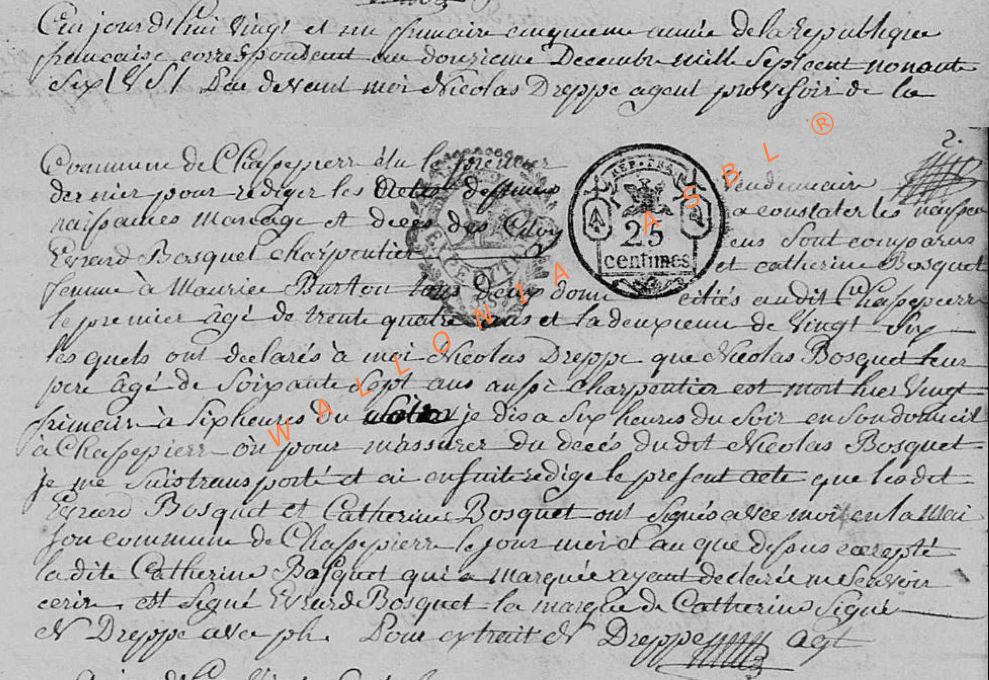 Cejourd'hui vingt et un frimaire cinquieme année de la republique
francaise correspondent au douzieme Decembre mille Septcent nonante
Six V S l Par devant moi Nicolas Dreppe agent provisoir de la
2.
Commune de Chassepierr élu le premier
vendemiair
dernier pour rediger les actes
a constater les naissan
naissances Mariage et deces des Citoy
ens sont comparus
Evrard Bosquet charpentier
et catherine Bosquet
femme à Maurice Burton tous deux domi ciliés audit Chassepierr
le premier agé de trente quatre ans et la deuxieme de vingt Six
lesquels ont declarés à moi Nicolas Dreppe que Nicolas Bosquet leur
pere agé de Soixante Sept ans aussi charpentier est mort hier vingt
frimair à Six heures du je dis a Six heures du Soir en Son domicil
à Chassepierr ou pour m'assurer du decés du dit Nicolas Bosquet
je me Suis transporté et ai ensuite redige le present acte que les dit
Evrard Bosquet et Catherine Bosquet ont Signés avec moi en la mai
son commune de Chassepierr le jour moi et an que dessus excepté
la dite Catherine Bosquet qui a marquée ayant declarée ne Scavoir
ecrir est Signé Evrard Bosquet la marque de Catherine Signé
N Dreppe avec ph. Pour extrait N Dreppe agt
REP. FRA.
25
centimes
WALLONIA ASBL ®